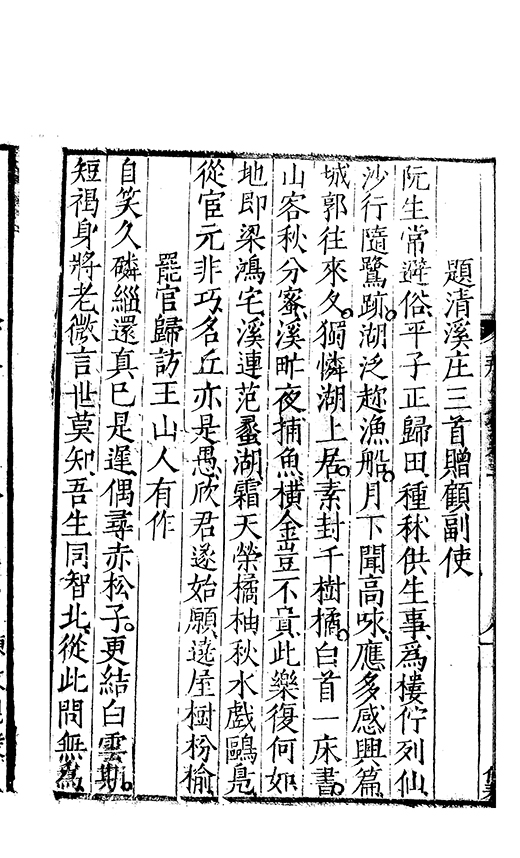 題清溪庄三首贈顧副使
阮生常避俗平子正歸田種秫供生事爲樓佇列仙
沙行隨鷺跡湖泛趂漁船月下聞高咏應多感興篇
城郭往來久獨憐湖上居素封千樹橘白首一床書
山客秋分蜜溪甿夜捕魚橫金豈不貴此樂復何如
地即梁鴻宅溪連范蠡湖霜天榮橘柚秋水戲鷗鳬
從宦元非巧名丘亦是愚欣君遂始願遶屋樹枌榆
罷官歸訪王山人有作
自笑久磷緇還真已是遲偶尋赤松子更結白雲期
短褐身將老微言世莫知吾生同智北從此問無爲